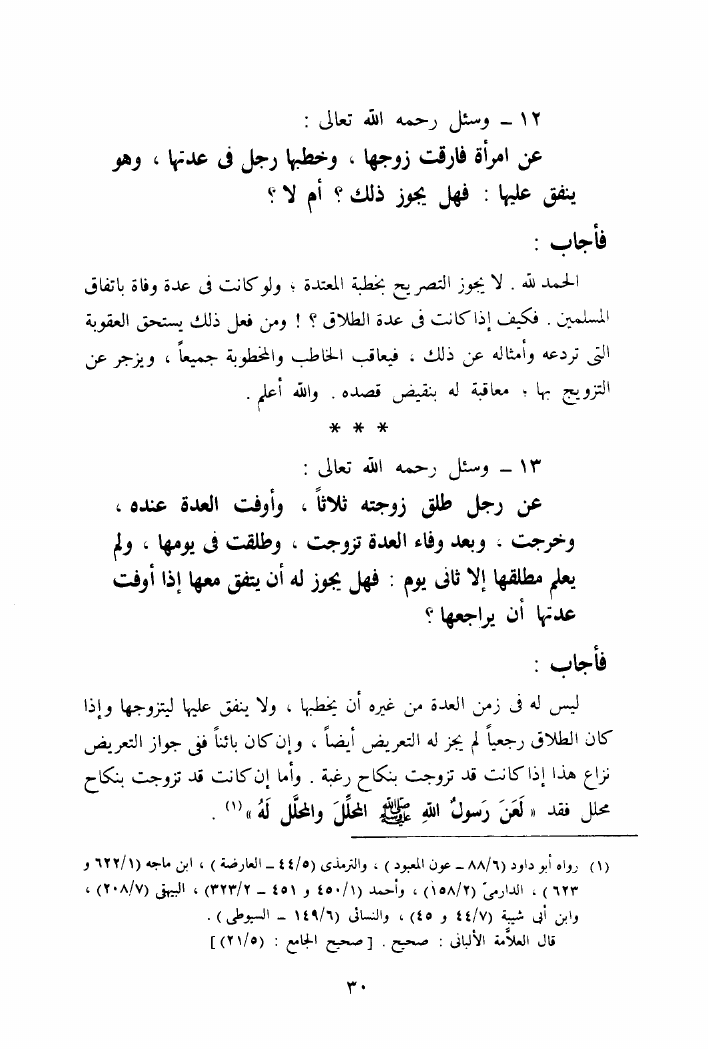 ١٢ – وسئل رحمه الله تعالى :
عن امرأة فارقت زوجها ، وخطبها رجل فى عدتها ، وهو
ينفق عليها : فهل يجوز ذلك ؟ أم لا ؟
فأجاب :
الحمد لله . لا يجوز التصريح بخطبة المعتدة ؛ ولو كانت فى عدة وفاة باتفاق
المسلمين . فكيف إذا كانت فى عدة الطلاق ؟ ! ومن فعل ذلك يستحق العقوبة
التى تردعه وأمثاله عن ذلك ، فيعاقب الخاطب والمخطوبة جميعاً ، ويزجر عن
التزويج بها ؛ معاقبة له بنقيض قصده . والله أعلم .
* * *
١٣ – وسئل رحمه الله تعالى :
عن رجل طلق زوجته ثلاثاً ، وأوفت العدة عنده ،
وخرجت ، وبعد وفاء العدة تزوجت ، وطلقت فى يومها ، ولم
يعلم مطلقها إلا ثانى يوم : فهل يجوز له أن يتفق معها إذا أوفت
عدتها أن يراجعها ؟
فأجاب :
ليس له فى زمن العدة من غيره أن يخطبها ، ولا ينفق عليها ليتزوجها وإذا
كان الطلاق رجعياً لم يجز له التعريض أيضاً ، وإن كان بائناً ففى جواز التعريض
نزاع هذا إذا كانت قد تزوجت بنكاح رغبة . وأما إن كانت قد تزوجت بنكاح
محلل فقد « لَعَنَ رَسولُ اللهِ ﷺ المحلِّلَ والمحلَّل لَهُ » (١) .
(١) رواه أبو داود (٨٨/٦ – عون المعبود) ، والترمذى (٤٤/٥ – العارضة) ، ابن ماجه (٦٢٢/١ و
٦٢٣) ، الدارمىّ (١٥٨/٢) ، وأحمد (٤٥٠/١ و ٤٥١ – ٣٢٣/٢) ، البيهقى (٢٠٨/٧) ،
وابن أبى شيبة (٤٤/٧ و ٤٥) ، والنسائى (١٤٩/٦ – السيوطى) .
قال العلاَّمة الألبانى : صحيح . [صحيح الجامع : (٢١/٥)]
٣٠